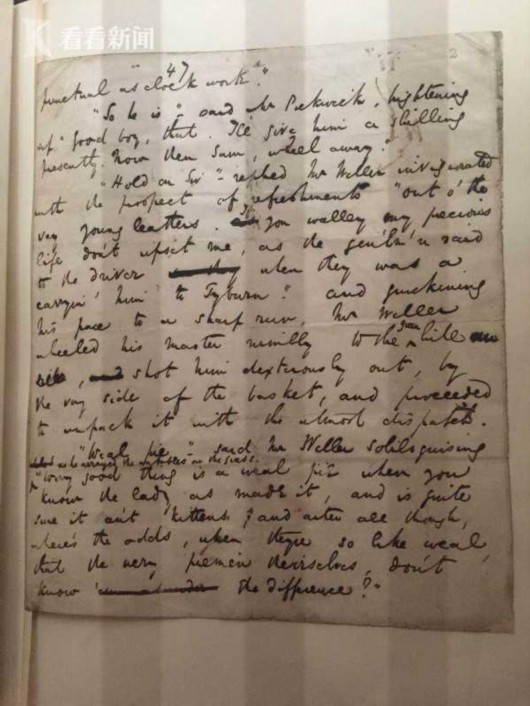 看看新闻
47
2
punctual as clock work."
"So he is", said Mr Pickwick, brightening
up "good boy, that. I'll give him a shilling
presently. Now then Sam, wheel away."
"Hold on Sir" - replied Mr Weller invigorated
with the prospect of refreshments "out o' the
vay young leathers. If you walley my precious
life don't upset me, as the gen'lm'n said
to the driver when they was a
carryin' him to Tyburn." and quickening
his pace to a sharp run, Mr Weller
wheeled his master nimbly to the green hill
, shot him dexterously out, by
the very side of the basket, and proceeded
to unpack it with the utmost dispatch.
"Weal pie" said Mr Weller soliloquising
as he arranged the eatables on the grass.
"Wery good thing is a weal pie when you
know the lady as made it, and is quite
sure it ain't kittens; and arter all though,
where's the odds, when they're so like weal
that the wery piemen theirselves don't
know the difference?"